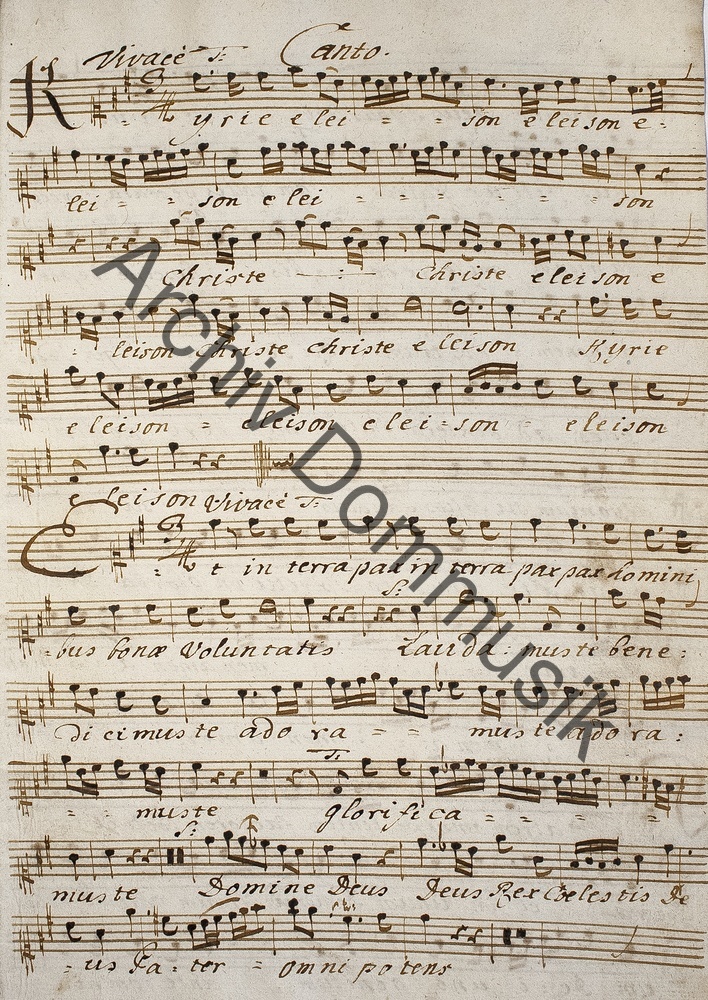 Vivacè T: Canto.
Kyrie elei - - - son eleison e -
lei - - son elei - - - - - son
Christe - : - Christe eleison e
- leison Christe Christe eleison Kyrie
eleison - eleison elei - son - eleison
eleison Vivacè T:
Et in terra pax in terra pax pax homini
S:
- bus bonæ Voluntatis Lauda - muste bene -
dicimus te ado ra - - muste ado ra :
T:
- - muste glorifica - - -
S:
muste Domine Deus Deus Rex Cœlestis De
- us Pa - ter - omnipotens
Archiv Dommusik